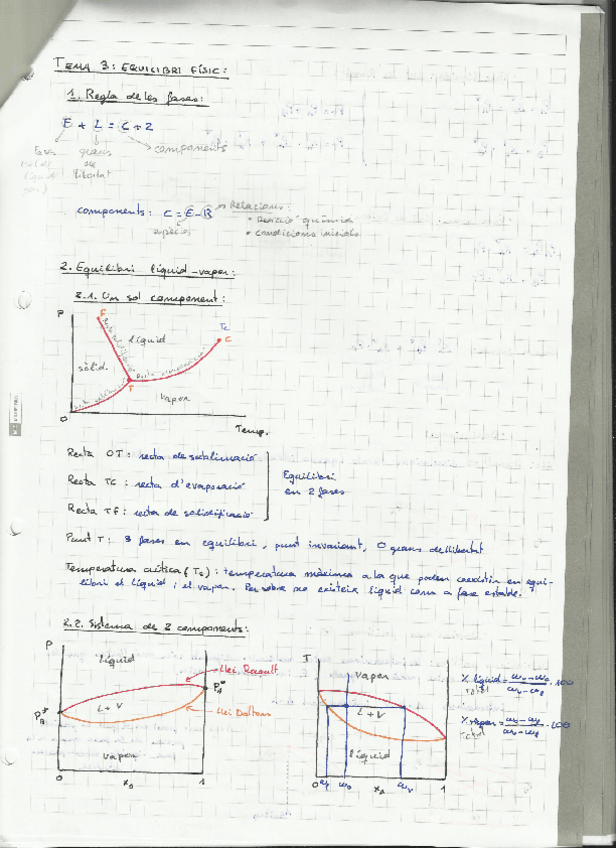 TEMA 3: EQUILIBRI FÍSIC:
1. Regla de les fases:
F + L = C + 2
fases
graus de llibertat
components
components: C = E - R
espècies
Relacions:
• Reacció química
• Condicions inicials
2. Equilibri líquid-vapor:
2.1. Un sol component:
P
F
Tc
líquid
C
sòlid
T
vapor
O
Temp.
Recta OT: recta de sublimació
Recta TC: recta d'evaporació
Recta TF: recta de solidificació
Equilibri
en 2 fases
Punt T: 3 fases en equilibri, punt invariant, 0 graus de llibertat
Temperatura crítica (Tc): temperatura màxima a la que poden coexistir en equi-
libri el líquid i el vapor. Per sobre no existeix líquid com a fase estable.
2.2. Sistema de 2 components:
P
líquid
Llei Raoult
L+V
Llei Dalton
vapor
0
1
T
vapor
L+V
líquid
0
1
% líquid =
· 100
total
% vapor =
· 100
total